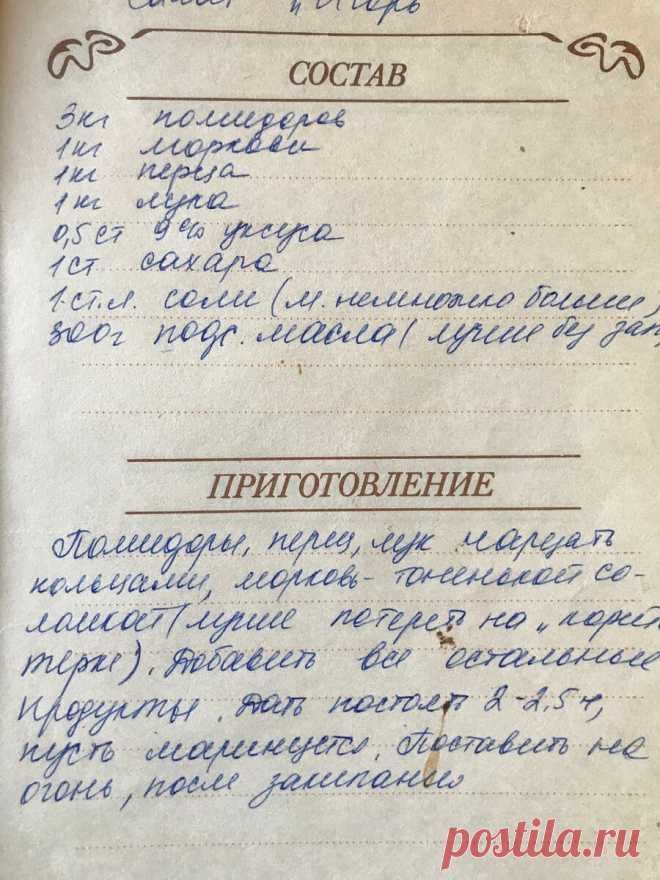 Салат "Игорь
СОСТАВ
3кг помидоров
1кг моркови
1кг перца
1кг лука
0,5 ст 9% уксуса
1ст сахара
1.ст.л. соли (м. немножко больше)
300г подс. масла (лучше без зап.
ПРИГОТОВЛЕНИЕ
Помидоры, перец, лук нарезать
кольцами, морковь - тоненькой со-
ломкой (лучше потереть на „
терке). Добавить все остальные
продукты. Дать постоять 2-2,5 ч,
пусть маринуется. Поставить на
огонь, после закипания
postila.ru